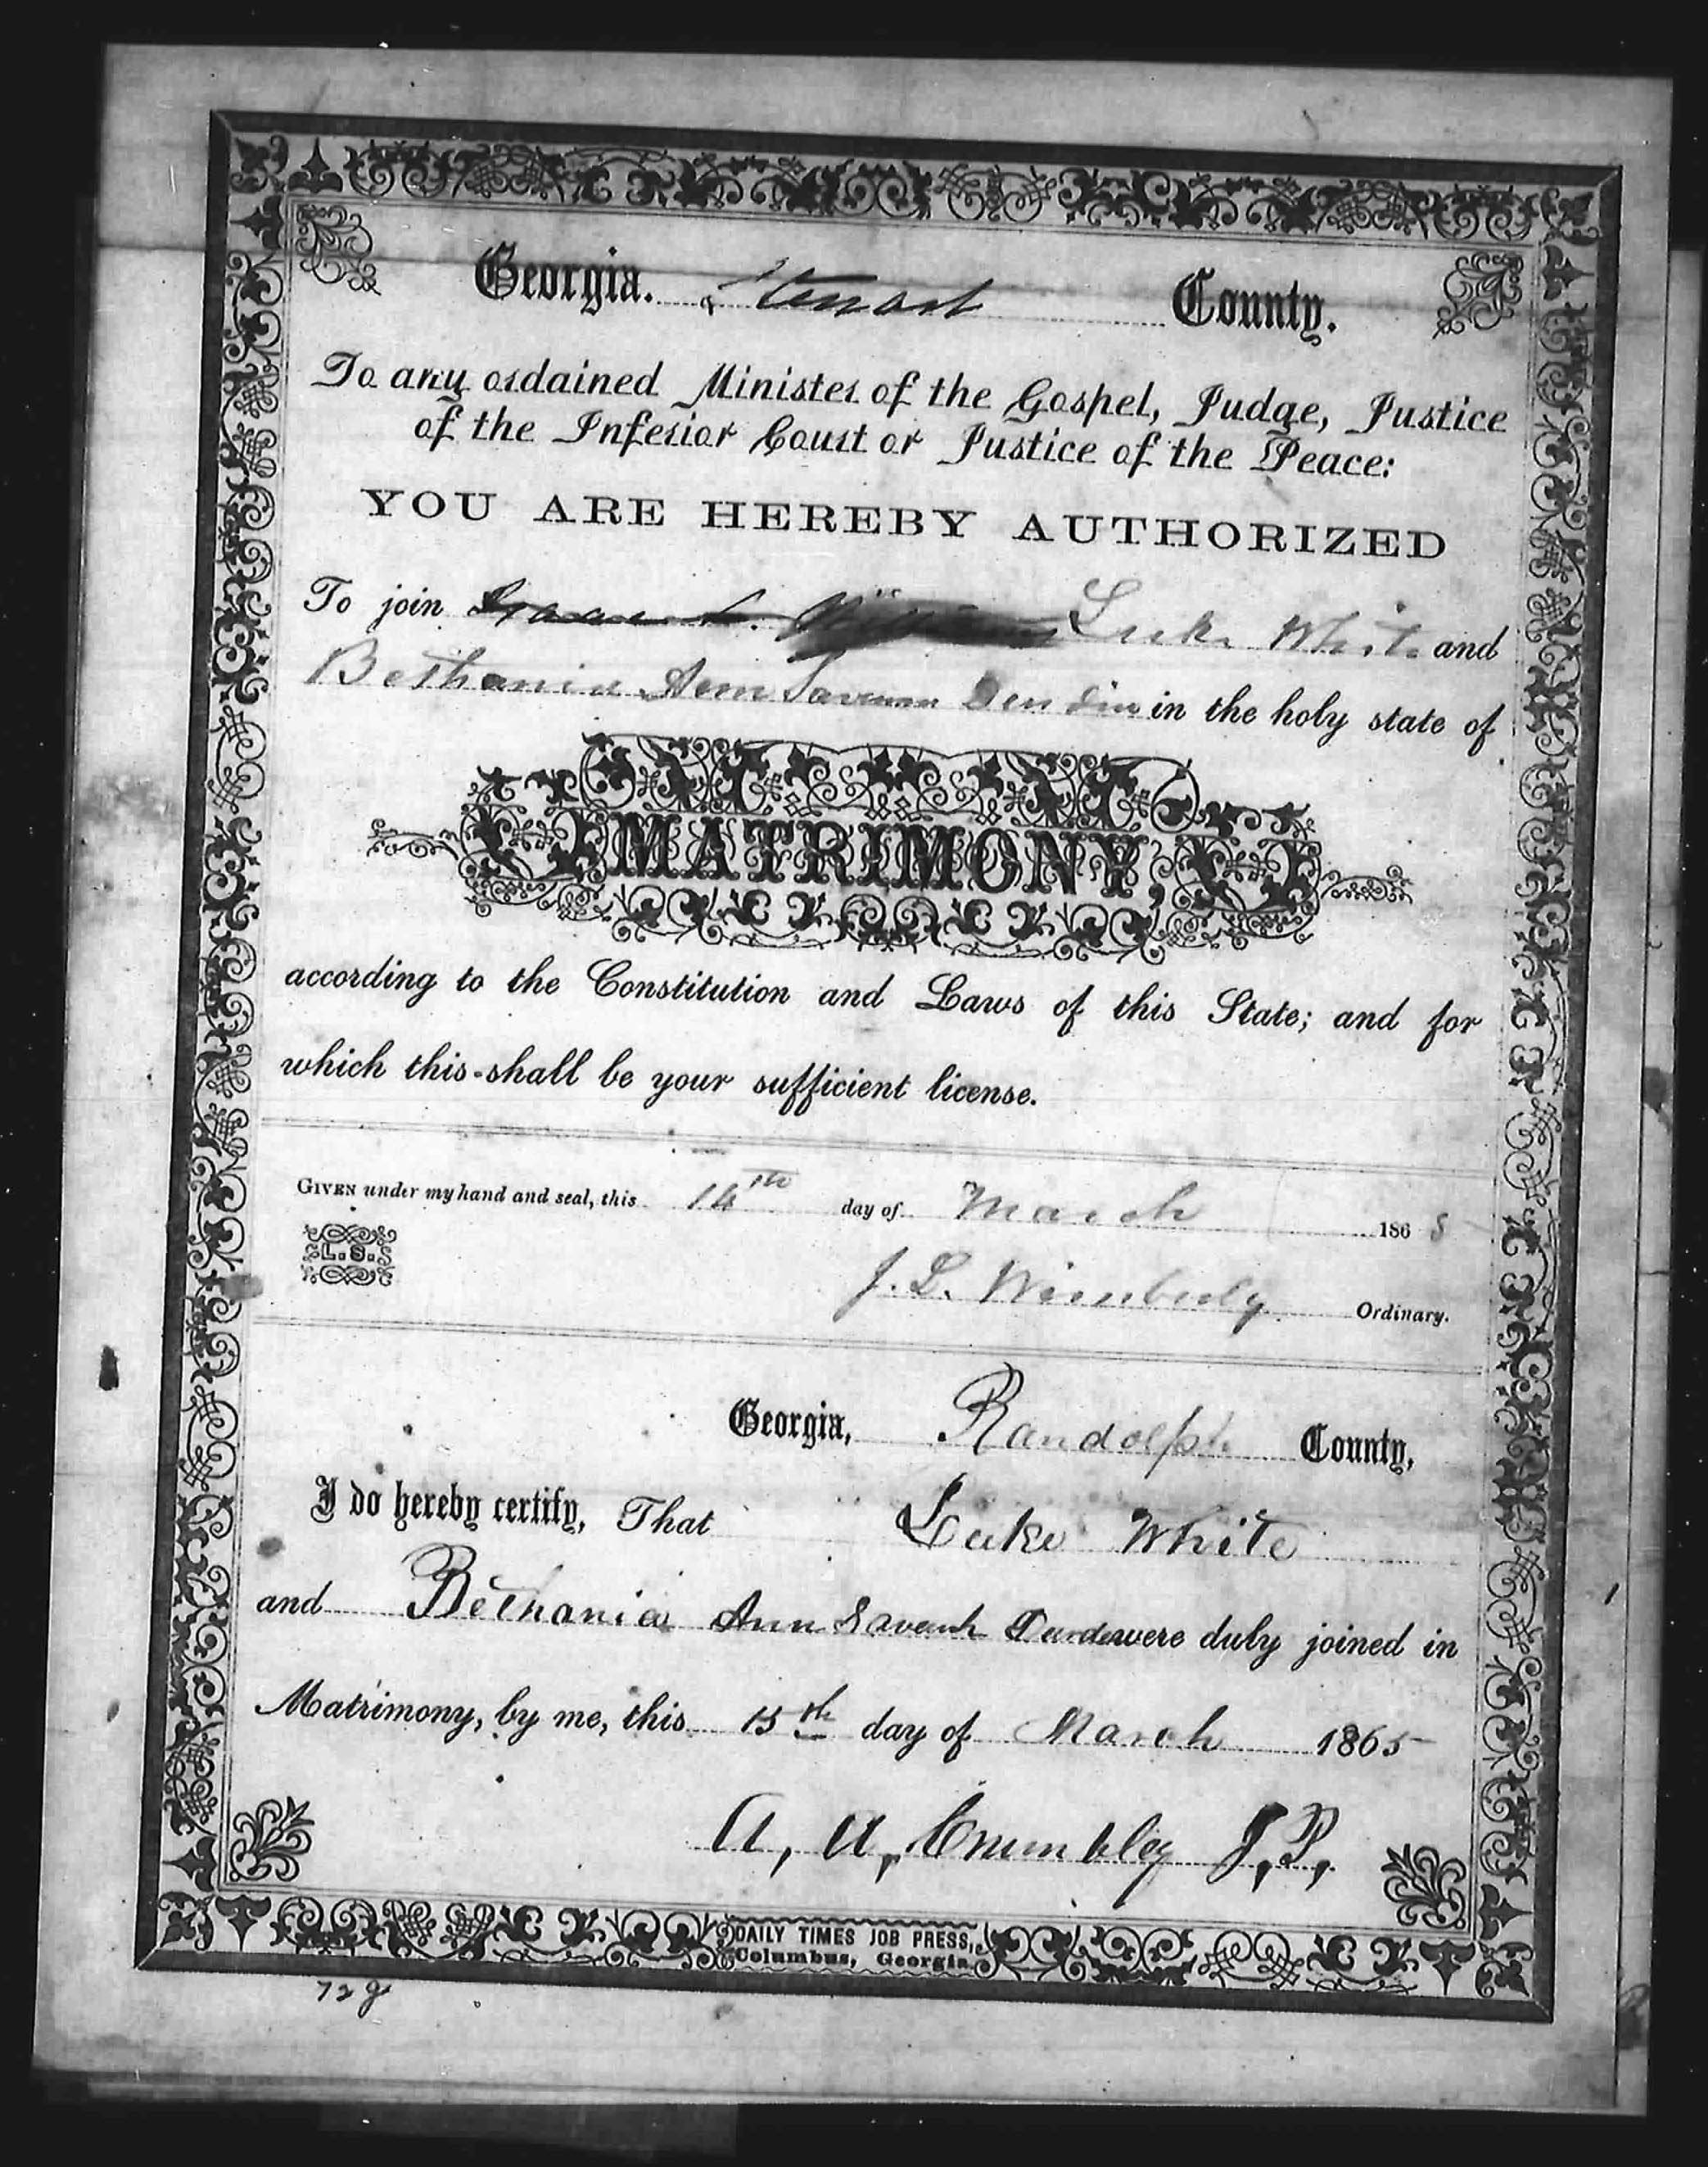 Georgia. Stewart County.
To any ordained Minister of the Gospel, Judge, Justice
of the Inferior Court or Justice of the Peace:
YOU ARE HEREBY AUTHORIZED
To join Luke White and
Bethania Ann in the holy state of
MATRIMONY,
according to the Constitution and Laws of this State; and for
which this shall be your sufficient license.
GIVEN under my hand and seal, this 14th day of March 186
L. S.
J. L. Wimberly Ordinary.
Georgia, Randolph County,
I do hereby certify, That Luke White
and Bethania Ann were duly joined in
Matrimony, by me, this 15th day of March 1865
A, A, Crumbley J, P,
DAILY TIMES JOB PRESS,
Columbus, Georgia.